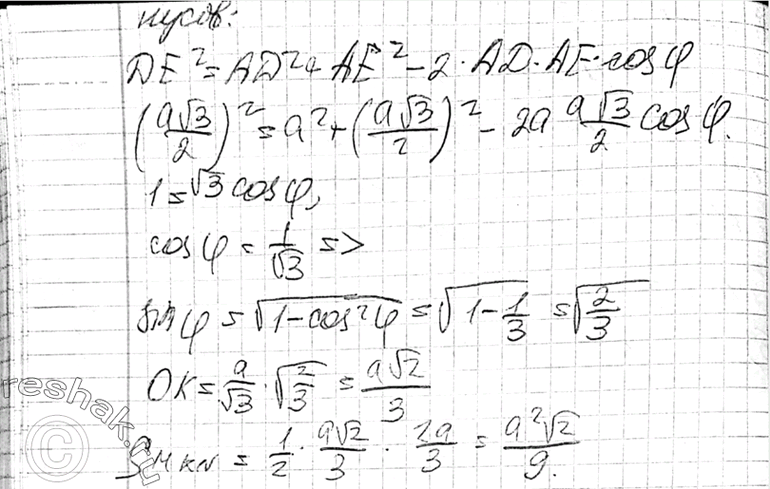 нусов:
DE² = AD² + AE² - 2 · AD · AE · cos φ
(a√3/2)² = a² + (a√3/2)² - 2a a√3/2 cos φ.
1 = √3 cos φ,
cos φ = 1/√3 =>
sin φ = √(1 - cos² φ) = √(1 - 1/3) = √(2/3)
OK = a/√3 · √(2/3) = a√2/3
S_MKN = 1/2 · a√2/3 · 2a/3 = a²√2/9.
reshak.ru
©